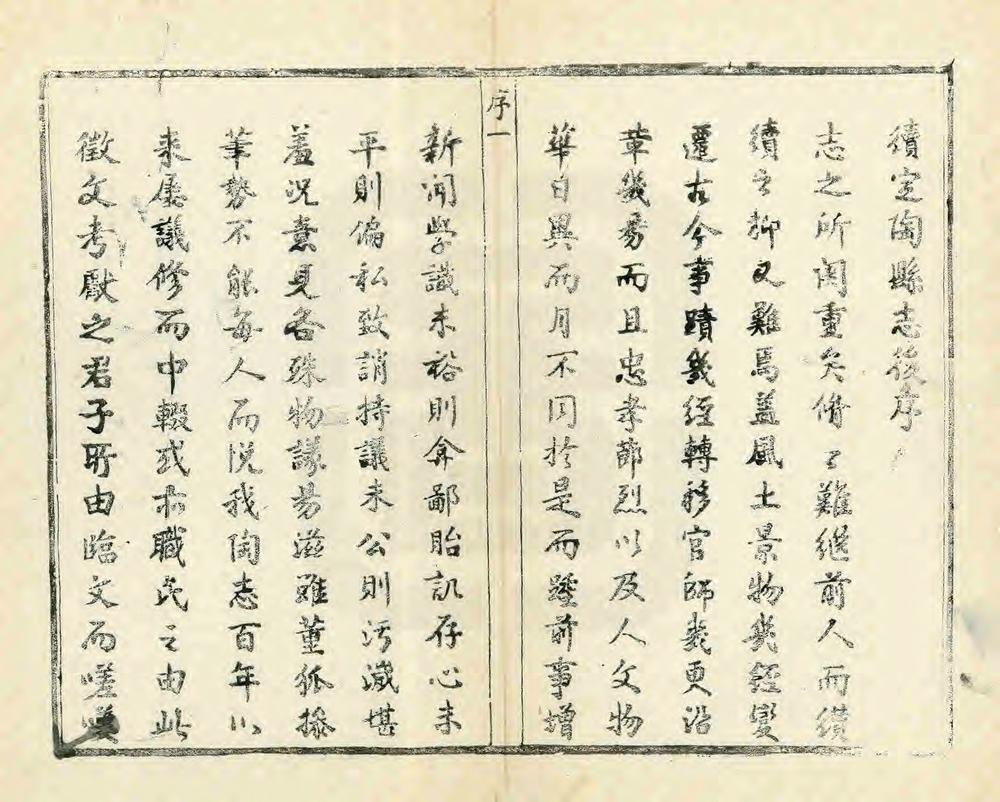 續定陶縣志後序
志之所関重矣脩之難繼前人而續
續之抑又難焉蓋風土景物幾經變
遷古今事蹟幾經轉移官師幾更沿
革幾易而且忠孝節烈以及人文物
華日異而月不同於是而踵前事增
序一
新聞學識未裕則弇鄙貽訊存心未
平則偏私致誚持議未公則污衊堪
羞況意見各殊物議易滋雖董狐操
筆勢不能每人而悅我陶志百年以
來屢議修而中輟或亦職民之由此
徵文考獻之君子所由臨文而嗟嘆